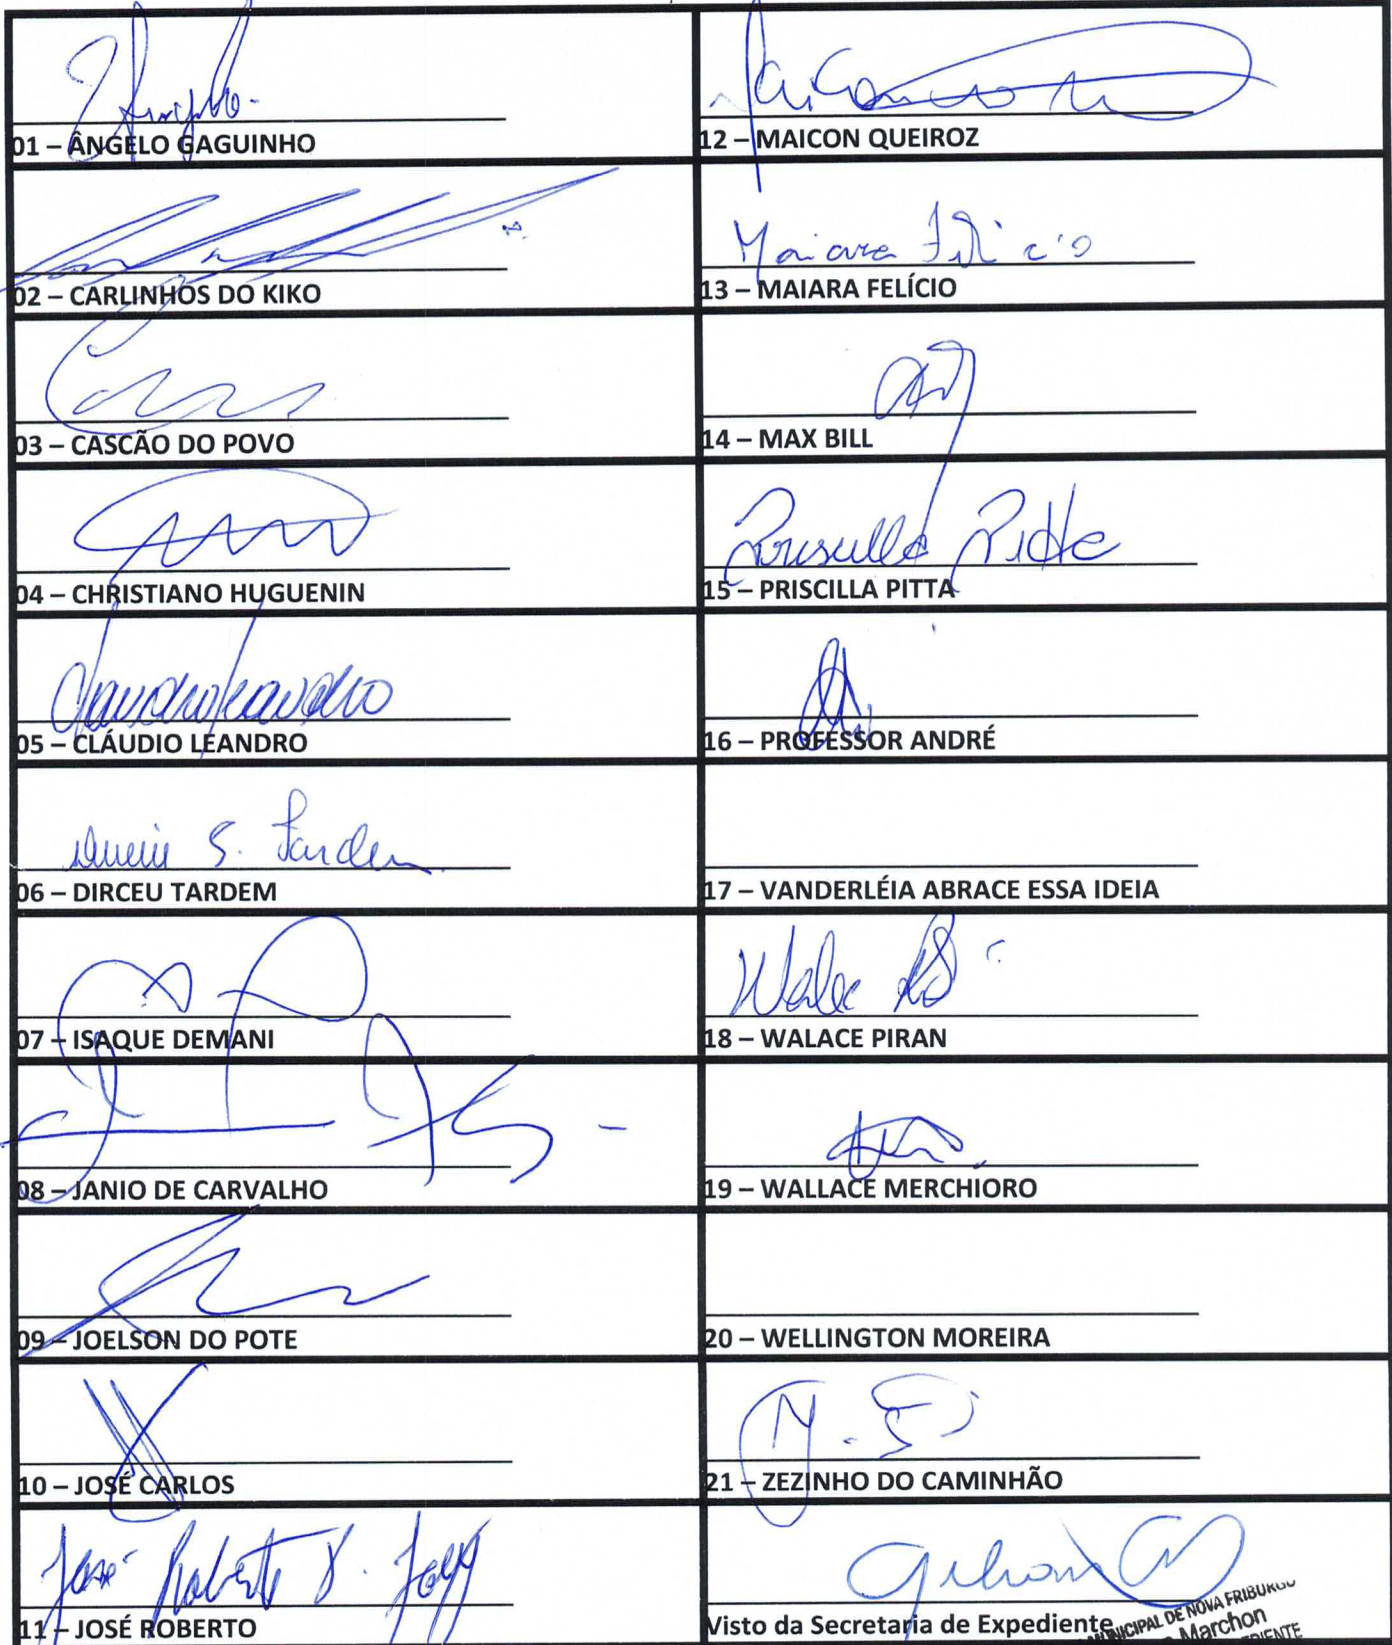 01 – ÂNGELO GAGUINHO
02 – CARLINHOS DO KIKO
03 – CASCÃO DO POVO
04 – CHRISTIANO HUGUENIN
Claudio Leandro
05 – CLÁUDIO LEANDRO
Dirceu S. Tardem
06 – DIRCEU TARDEM
07 – ISAQUE DEMANI
08 – JANIO DE CARVALHO
09 – JOELSON DO POTE
10 – JOSÉ CARLOS
José Roberto
11 – JOSÉ ROBERTO
12 – MAICON QUEIROZ
Maiara Felicio
13 – MAIARA FELÍCIO
14 – MAX BILL
Priscilla Pitta
15 – PRISCILLA PITTA
16 – PROFESSOR ANDRÉ
17 – VANDERLÉIA ABRACE ESSA IDEIA
18 – WALACE PIRAN
19 – WALLACE MERCHIORO
20 – WELLINGTON MOREIRA
21 – ZEZINHO DO CAMINHÃO
Visto da Secretaria de Expediente
MUNICIPAL DE NOVA FRIBURGO
Marchon